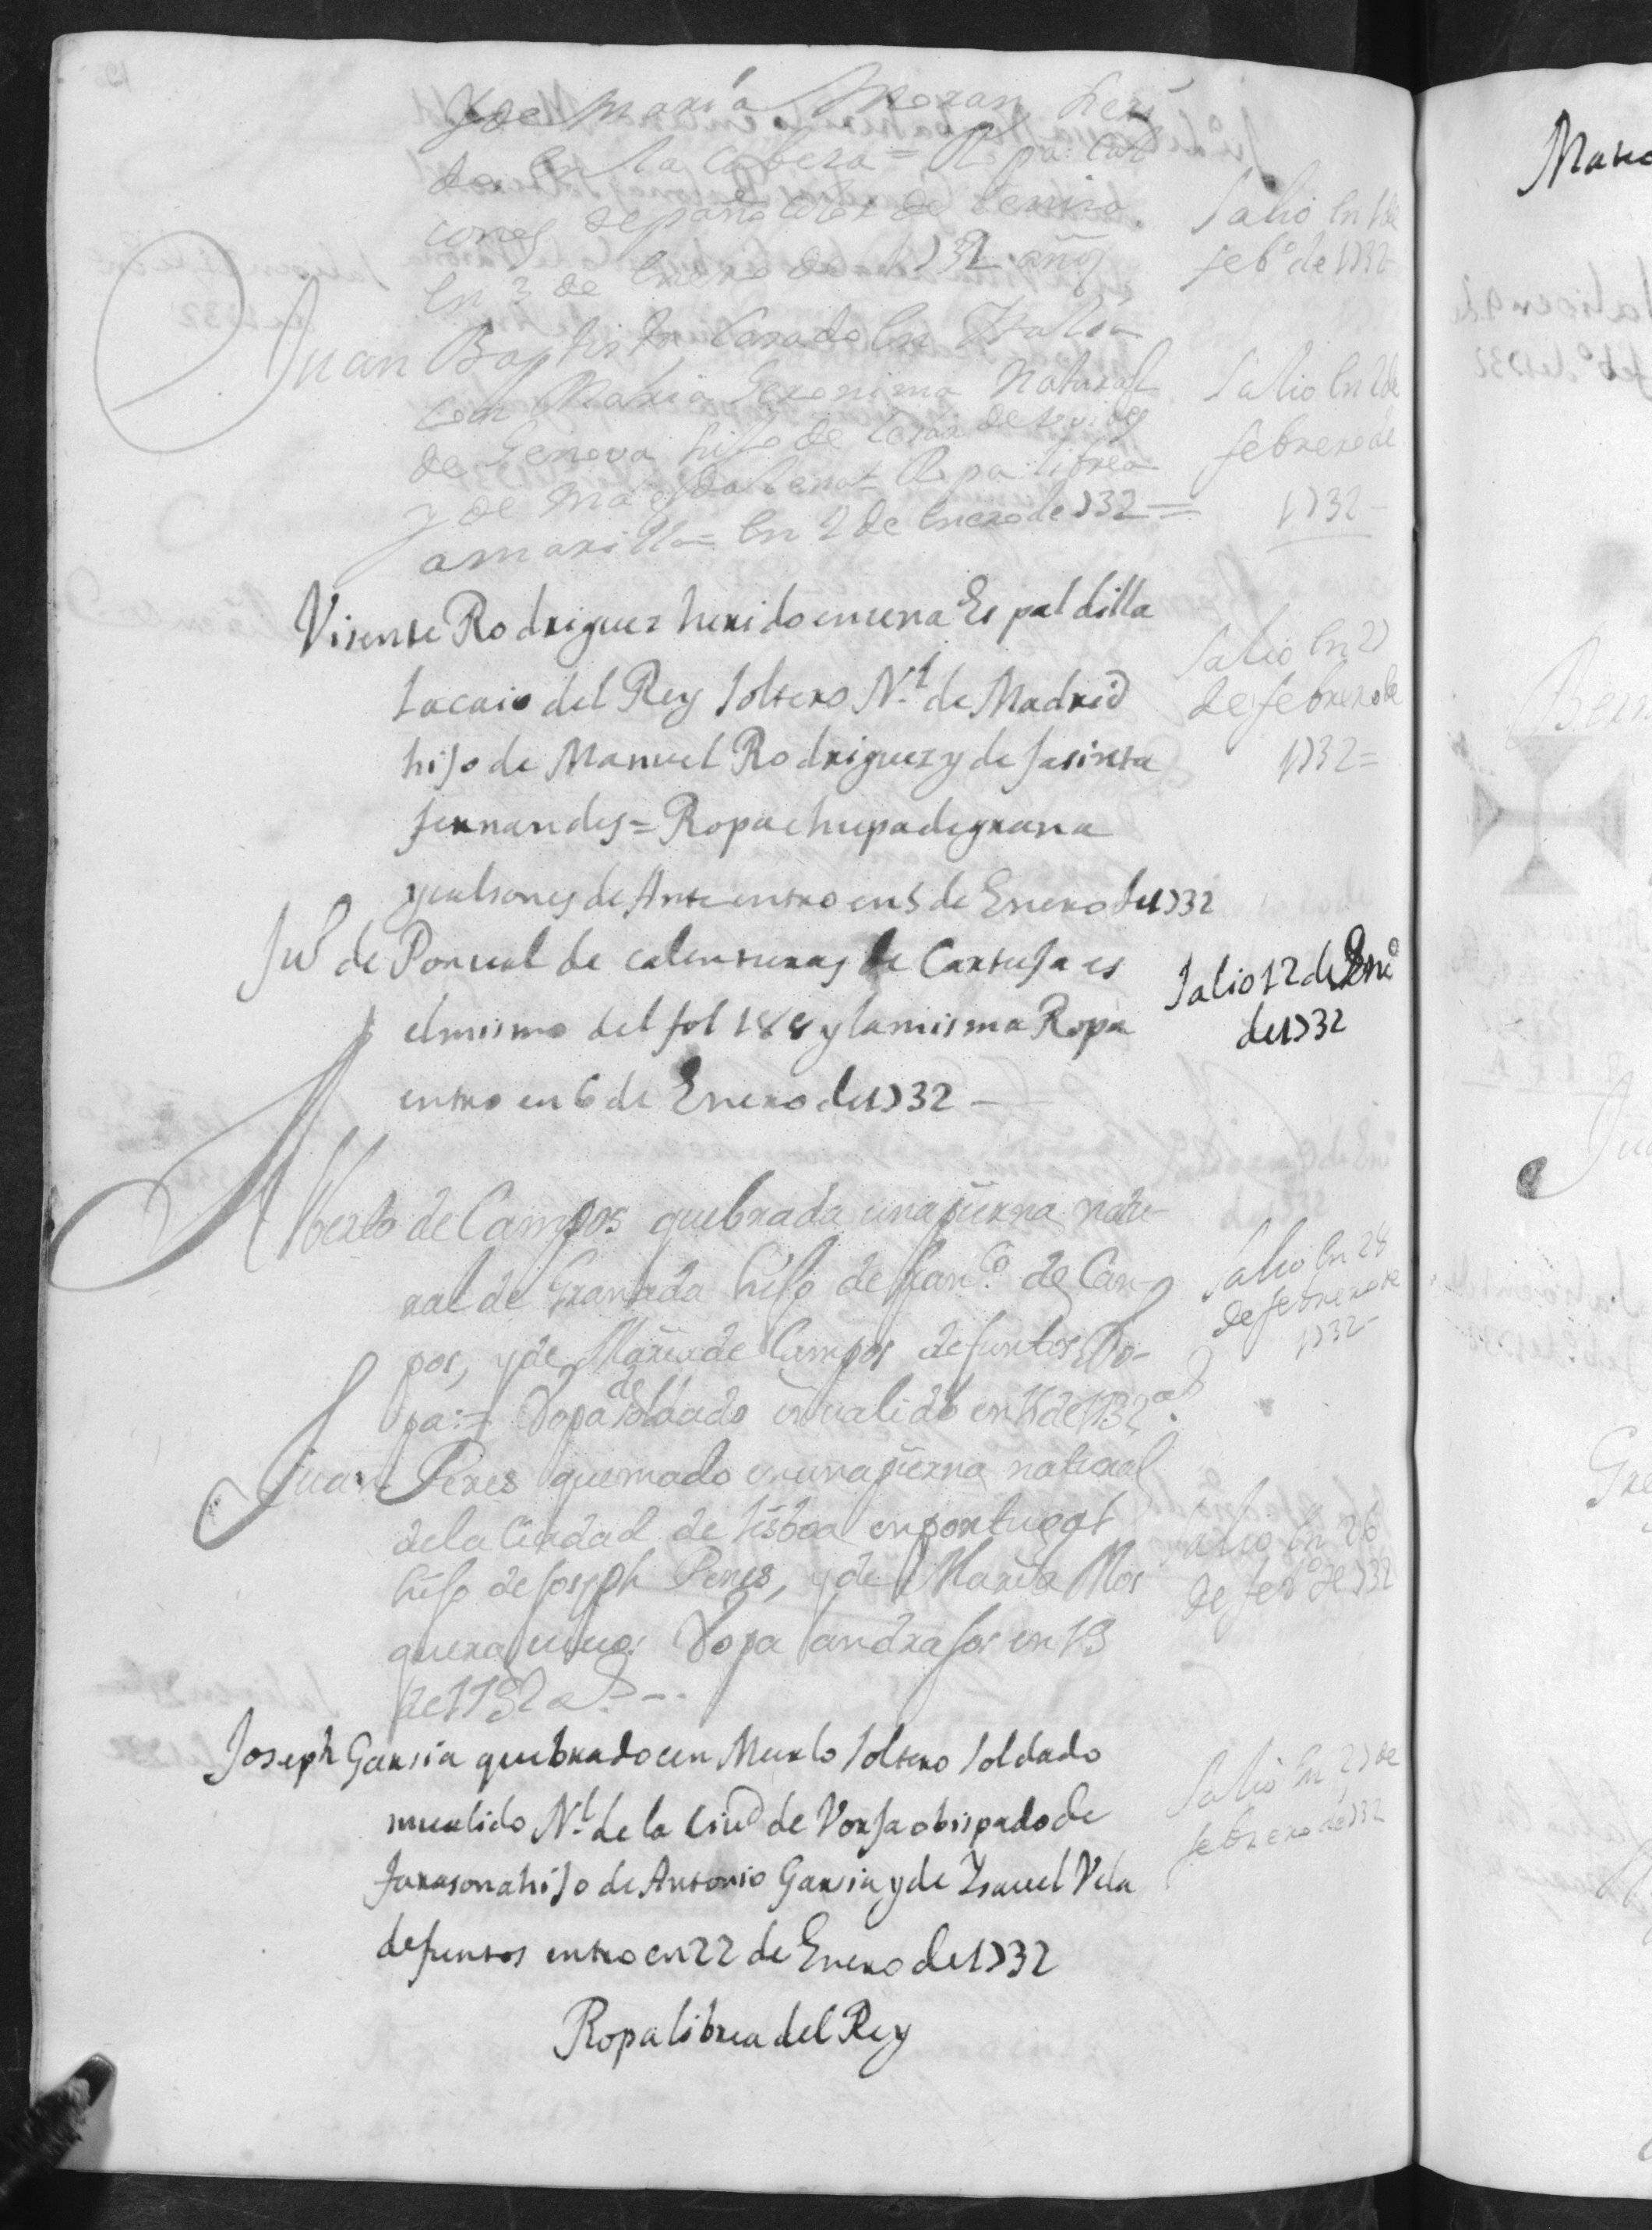 y de María Moran heri
do en la cabeza = Ropa cal
cones de paño color de
en 3 de Enero de 1732 años
Salio en 1 de
feb.º de 1732
Juan Baptista Casado en Italia
con Maria Geronima Natural
de Genova hijo de
y de Magdalena = Ropa librea
amarilla = en 2 de Enero de 1732 =
Salio en 2 de
febrero de
1732 -
Visente Rodriguez herido en una Espaldilla
Lacaio del Rey soltero N.l de Madrid
hijo de Manuel Rodriguez y de Jasinta
fernandes = Ropa chupa de grana
y calsones de Ante entro en 5 de Enero de 1732
Salio en 27
de febrero de
1732 =
Ju.º de Ponual de calenturas de Cartuja es
el mismo del fol 188 y la misma Ropa
entro en 6 de Enero de 1732 —
Salio 12 de En.º
de 1732
Alberto de Campos quebrada una pierna natu-
ral de Granada hijo de fran.co de Can-
pos, y de Maria de Campos defuntos Ro-
pa := Ropa de soldado invalido en 16 de 1732 a.s
Salio en 28
de febrero de
1732 -
Juan Peres quemado en una pierna natural
de la Ciudad de Lisboa en portugal
hijo de Joseph Peres, y de Maria Mos
quera vivos Ropa andrajos en 19
de 1732 a.s --
Salio en 26
de feb.º de 1732
Joseph Garsia quebrado en Muslo soltero soldado
invalido N.l de la Ciud de Vorja obispado de
tarasona hijo de Antonio Garsia y de Ysauel Vela
defuntos entro en 22 de Enero de 1732
Ropa librea del Rey
Salio en 27 de
febrero de 1732